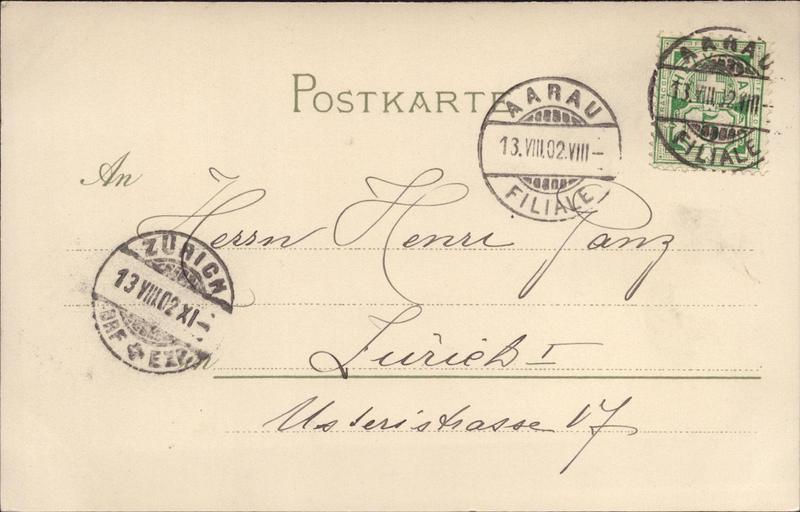 POSTKARTE
AARAU
13.VIII.02.VIII-
FILIALE
AARAU
13.VIII.02.VIII-
FILIALE
An
Herrn Henri Panz
ZÜRICH
13 VIII.02 XI-
Zürich I
Usteristrasse 17